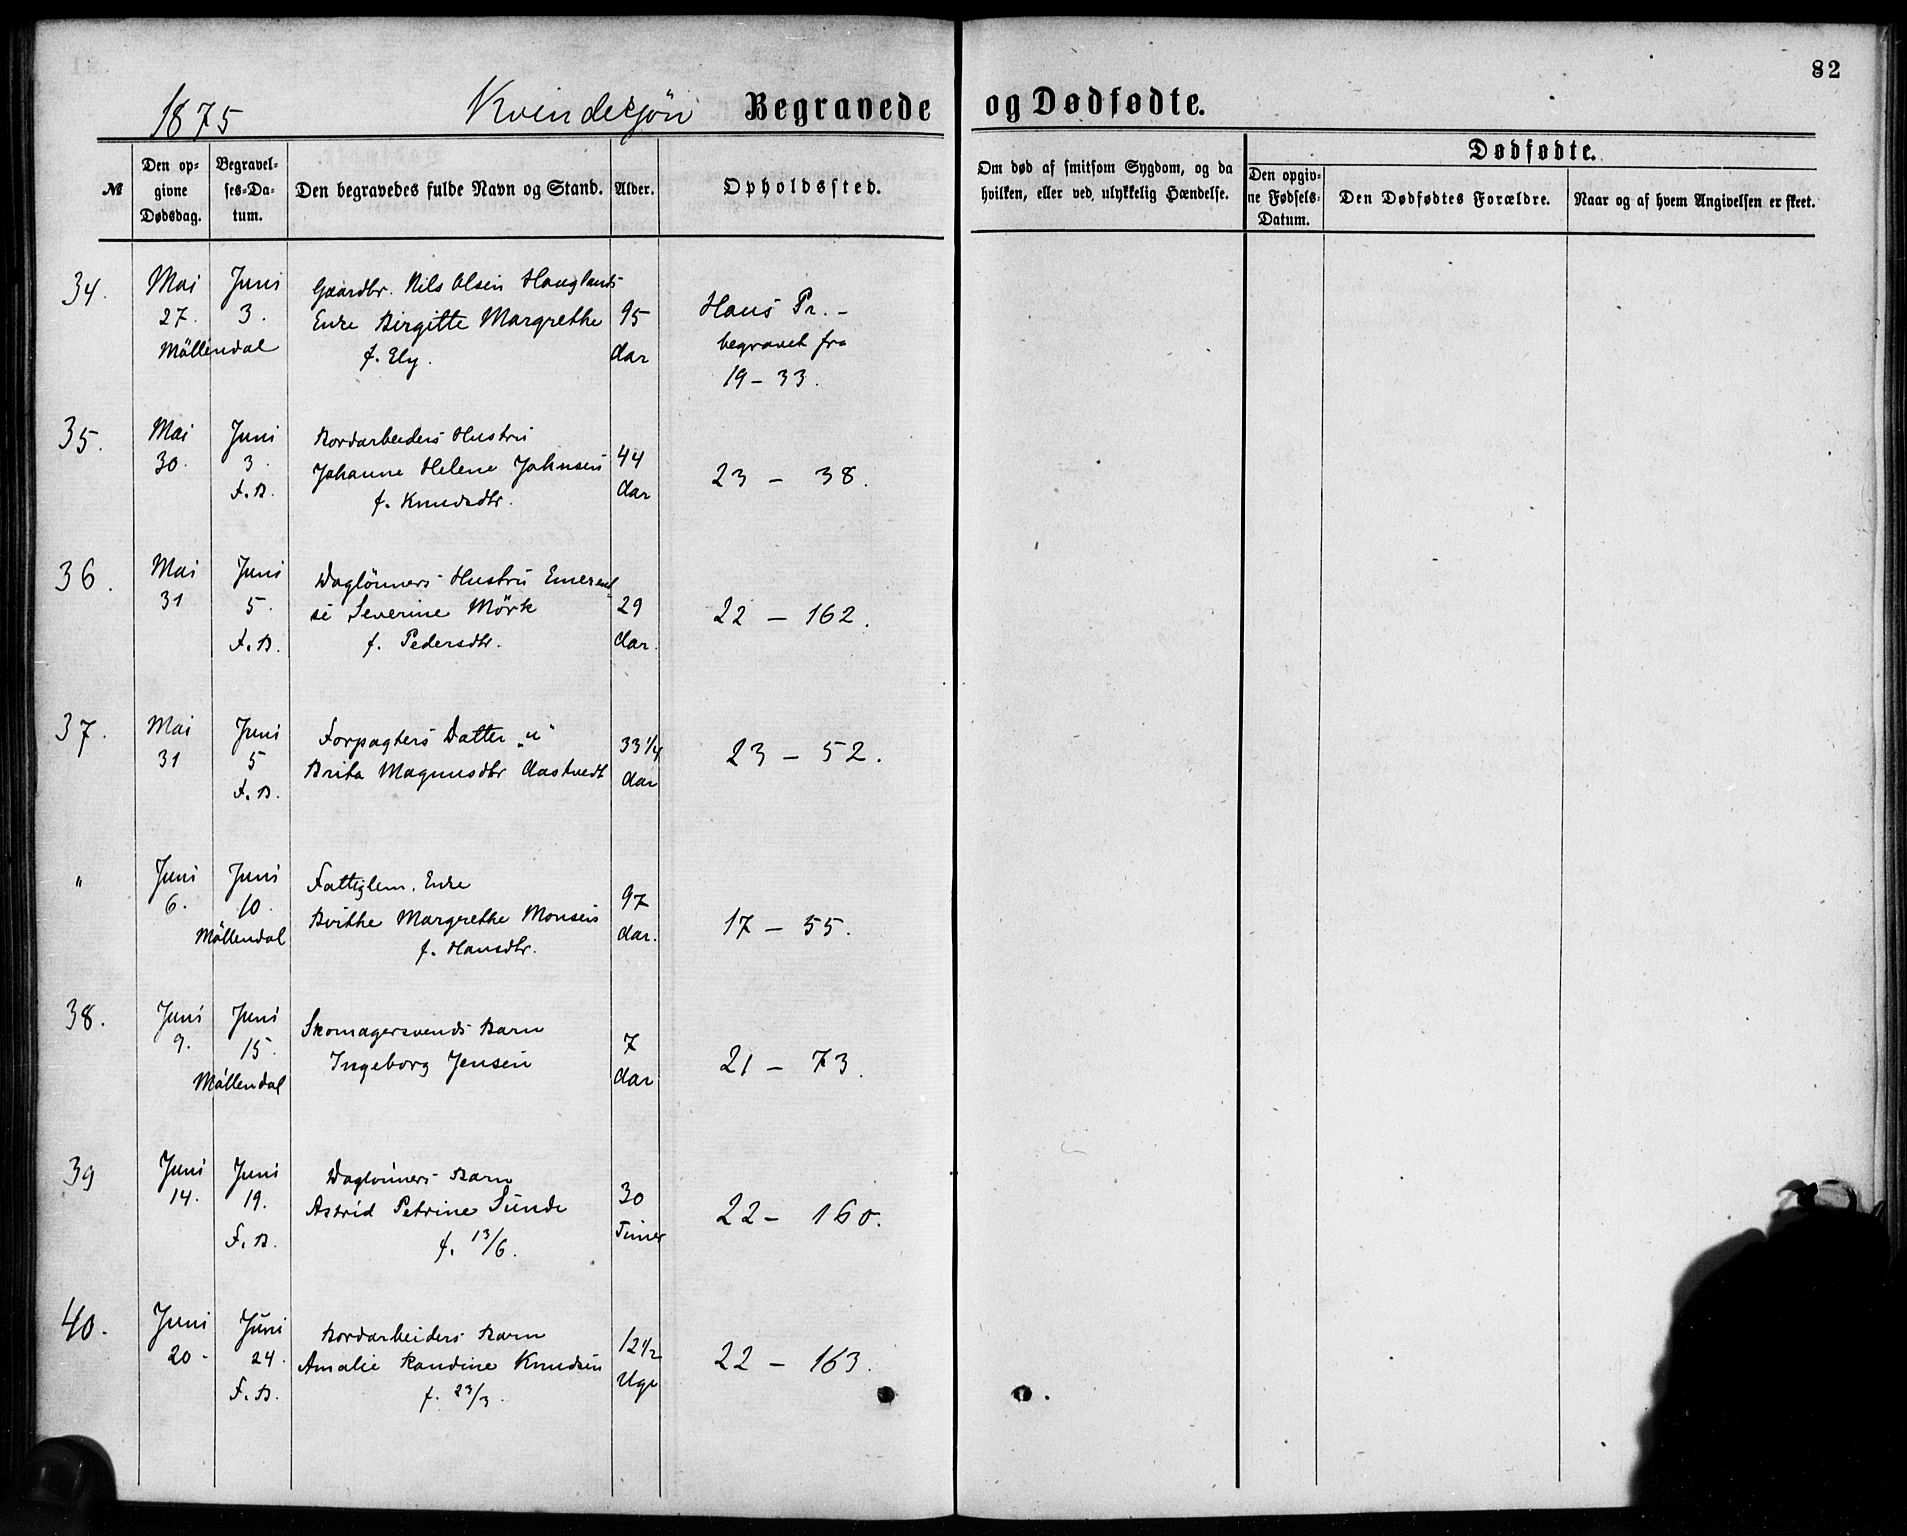 82
1875 Kvindekjön Begravede og Dødfødte.
№
Den opgivne Dødsdag.
Begravelses-Datum.
Den begravedes fulde Navn og Stand.
Alder.
Opholdssted.
Om død af smitsom Sygdom, og da hvilken, eller ved ulykkelig Hændelse.
Dødfødte.
Den opgivne Fødsels-Datum.
Den Dødfødtes Forældre.
Naar og af hvem Angivelsen er skeet.
34. Mai Juni Gaardbr. Nils Olsen Hauglands
27. 3. Enke Birgitte Margrethe 95 Haus Pr. -
Möllendal f. Ely. Aar begravet fra
19 - 33.
35. Mai Juni Bordarbeiders Hustru
30. 3. Johanne Helene Johnsen 44 23 - 38.
F.B. f. Knudsdtr. Aar
36. Mai Juni Daglönners Hustru Emerent
31 5. se Severine Mörk 29 22 - 162.
F.B. f. Pedersdtr. Aar.
37. Mai Juni Forpagters Datter „u“ 33 1/4
31 5 Brita Magnusdtr Aastvedt Aar 23 - 52.
F.B.
" Juni Juni Fattiglem, Enke 97
6. 10. Brithe Margrethe Monsen Aar. 17 - 55.
Möllendal f. Hansdtr.
38. Juni Juni Skomagersvends Barn 7
9. 15. Ingeborg Jensen Aar 21 - 73.
Möllendal
39 Juni Juni Daglönners Barn 30
14. 19. Astrid Petrine Sunde Timer 22 - 160.
F.B. f. 13/6.
40. Juni Juni Bordarbeiders Barn 12 1/2
20. 24. Amalie Randine Knudsen Uge 22 - 163.
F.B. f. 23/3.